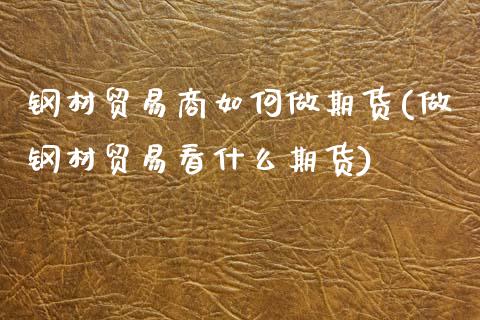 钢材贸易商如何做期货(做
钢材贸易看什么期货)